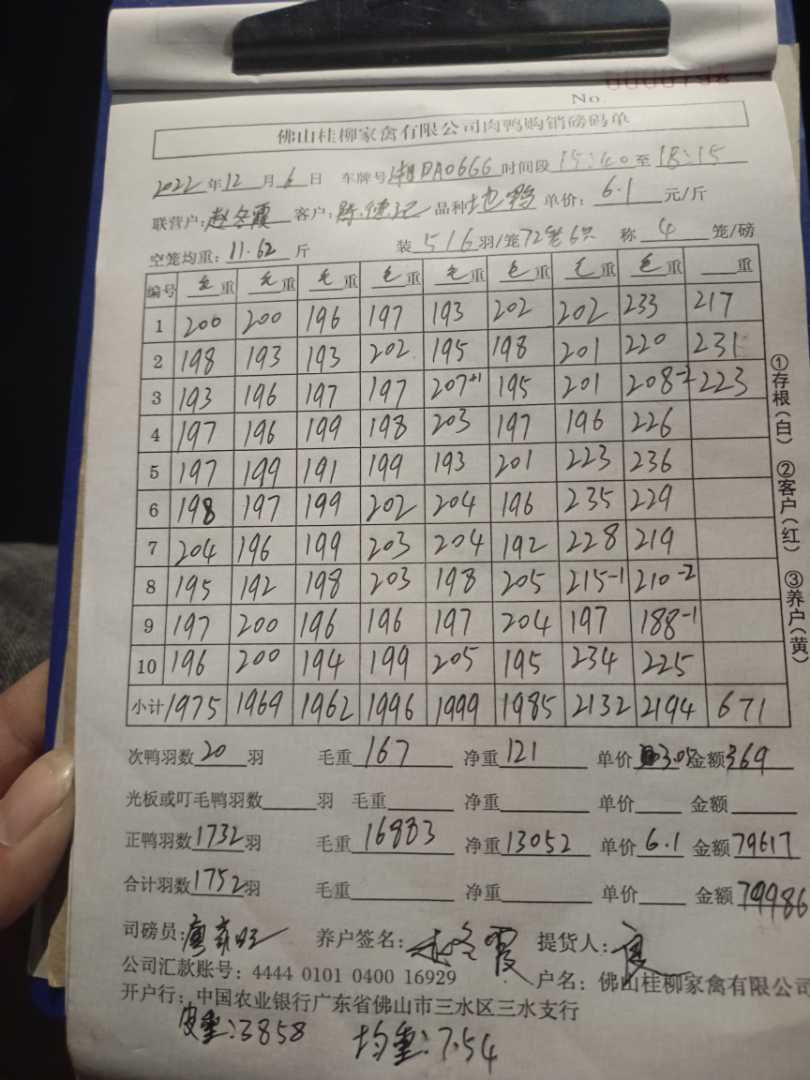 No
佛山桂柳家禽有限公司肉鸭购销磅码单
2022年12月6日 车牌号湘DA0666时间段15:40至18:15
联营户:赵冬霞 客户:陈德记 品种 单价:6.1元/斤
空笼均重:11.62斤 装5/6羽/笼72笼6只 称4笼/磅
编号 毛重 毛重 毛重 毛重 毛重 毛重 毛重 毛重 重
1 200 200 196 197 193 202 202 233 217
2 198 193 193 202 195 198 201 220 231
3 193 196 197 197 207+1 195 201 208-2 223
4 197 196 199 198 203 197 196 226
5 197 199 191 199 193 201 223 236
6 198 197 199 202 204 196 235 229
7 204 196 199 203 204 192 228 219
8 195 192 198 203 198 205 215-1 210-2
9 197 200 196 196 197 204 197 188-1
10 196 200 194 199 205 195 234 225
小计 1975 1969 1962 1996 1999 1985 2132 2194 671
次鸭羽数20羽 毛重167 净重121 单价3.05金额369
光板或叮毛鸭羽数 羽 毛重 净重 单价 金额
正鸭羽数1732羽 毛重16883 净重13052 单价6.1金额79617
合计羽数1752羽 毛重 净重 单价 金额79986
司磅员: 养户签名:赵冬霞 提货人:
公司汇款账号:4444 0101 0400 16929 户名:佛山桂柳家禽有限公司
开户行:中国农业银行广东省佛山市三水区三水支行
皮重:3858 均重:7.54
①存根(白) ②客户(红) ③养户(黄)